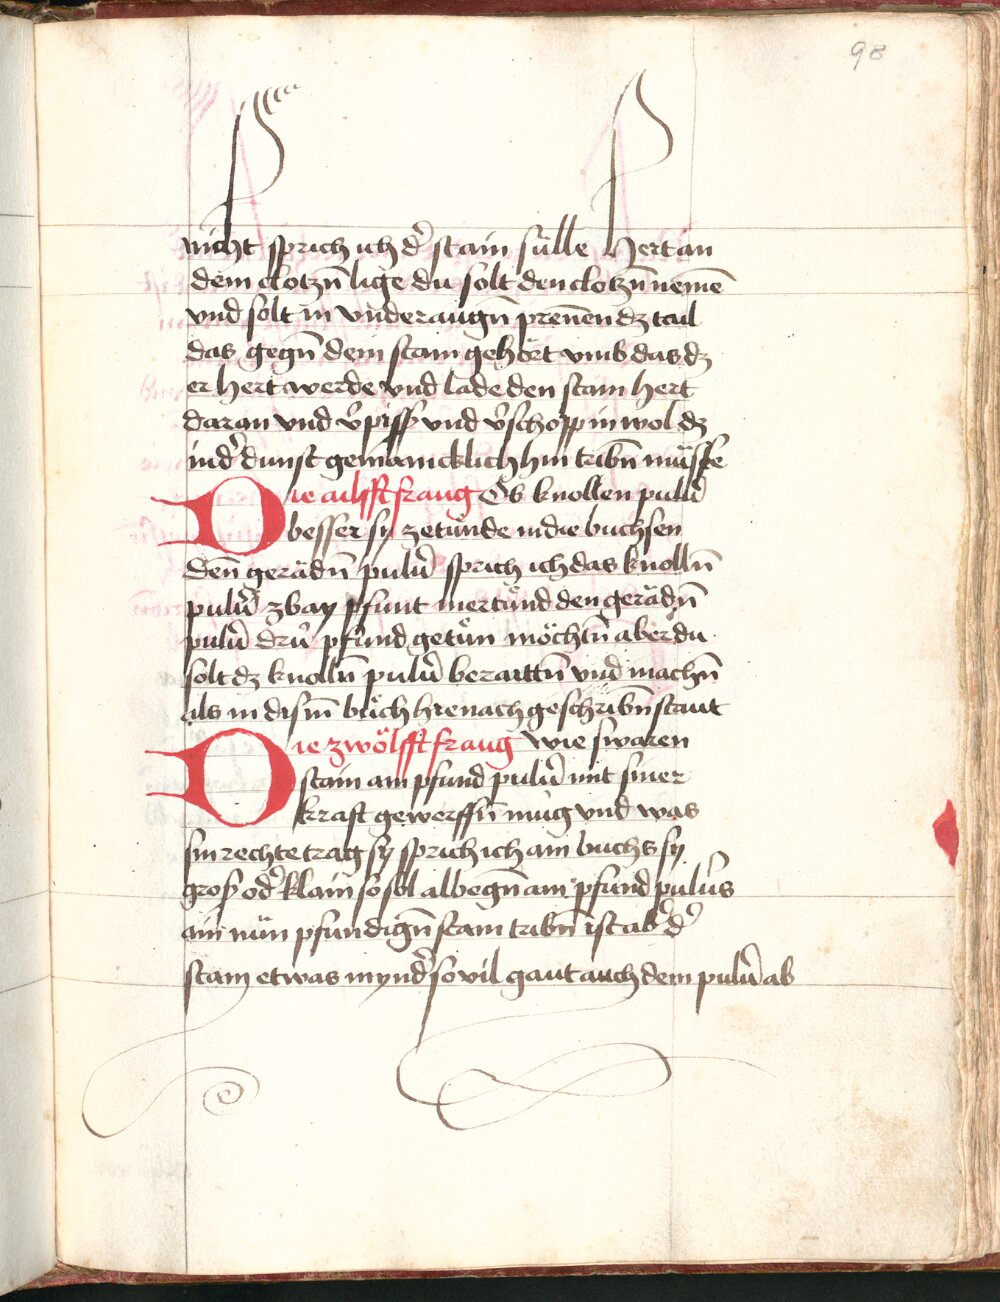 98
nicht sprich ich dˀ stain sülle hert an
dem clotzn̄ lige du solt den clotzn̄ nemē
vnd solt in vnder augn̄ prenen dz tail
das gegn̄ dem stain gehört vmb das dz
er hert werde vnd lade den stain hert
daran vnd vˀpiss vnd vˀschopp in wol dz
in dˀ dunst gemainicklich hin tribn̄ müsse
Die ailfft fraug Ob knollen pulūˀ
besser sy ze tünde in die buchsen
den̄ gerädn̄ pulūˀ sprich ich das knolln̄
pulūˀ zway pfunt mer tünd den gerädn̄
pulūˀ drü pfund getün möchtn̄ aber du
solt dz knolln̄ pulūˀ beraittn̄ vnd machn̄
als in dism̄ büch hienach geschribn̄ staut
Die zwölfft fraug wie swaren
stain ain pfund pulūˀ mit siner
krafft gewerffn̄ müg vnd was
sin rechte trag sy sprich ich ain buchs sy
gros odˀ klain so sol albegn̄ ain pfund pulūˀs
ain nün pfundign̄ stain tribn̄ ist abˀ dˀ
stain etwas myndˀ so vil gaut auch dem pulūˀ ab